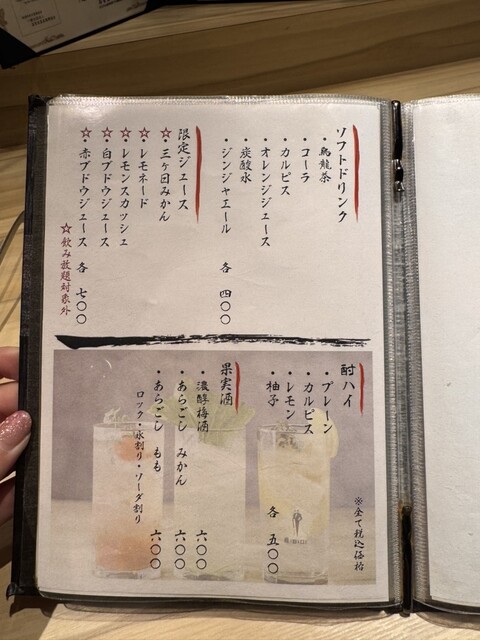 ソフトドリンク
・烏龍茶
・コーラ
・カルピス
・オレンジジュース
・炭酸水
・ジンジャエール 各 四〇〇
限定ジュース
☆三ヶ日みかん
☆レモネード
☆レモンスカッシュ
☆白ブドウジュース
☆赤ブドウジュース 各 七〇〇
☆飲み放題対象外
酎ハイ
・プレーン
・カルピス
・レモン
・柚子 各 五〇〇
果実酒
・濃醇梅酒 六〇〇
・あらごし みかん 六〇〇
・あらごし もも 六〇〇
ロック・水割り・ソーダ割り
※全て税込価格